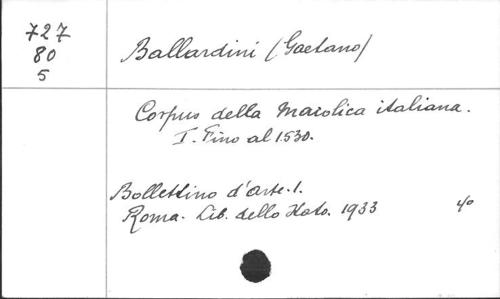 727
80
5
Ballardini (Gaetano)
Corpus della maiolica italiana.
I. Fino al 1530.
Bollettino d'Arte. 1.
Roma. Lib. dello Stato. 1933 4o